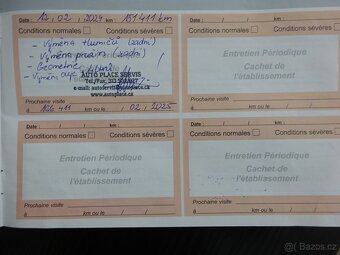 Date : 12 / 02 / 2024 km : 151 411 km
Conditions normales Conditions sévères
- Výměna tlumičů (zadní)
- Výměna pružin (zadní)
- Geometrie
- Výměna
AUTO PLACE SERVIS
www.autoplace.cz
Prochaine visite
à 166 411 km ou le 02 / 2025
Date : / / km :
Conditions normales Conditions sévères
Entretien Périodique
Cachet de
l'établissement
Prochaine visite
à km ou le / /
Date : / / km :
Conditions normales Conditions sévères
Entretien Périodique
Cachet de
l'établissement
Prochaine visite
à km ou le / /
Date : / / km :
Conditions normales Conditions sévères
Entretien Périodique
Cachet de
l'établissement
Prochaine visite
à km ou le / /
Bazoš.cz